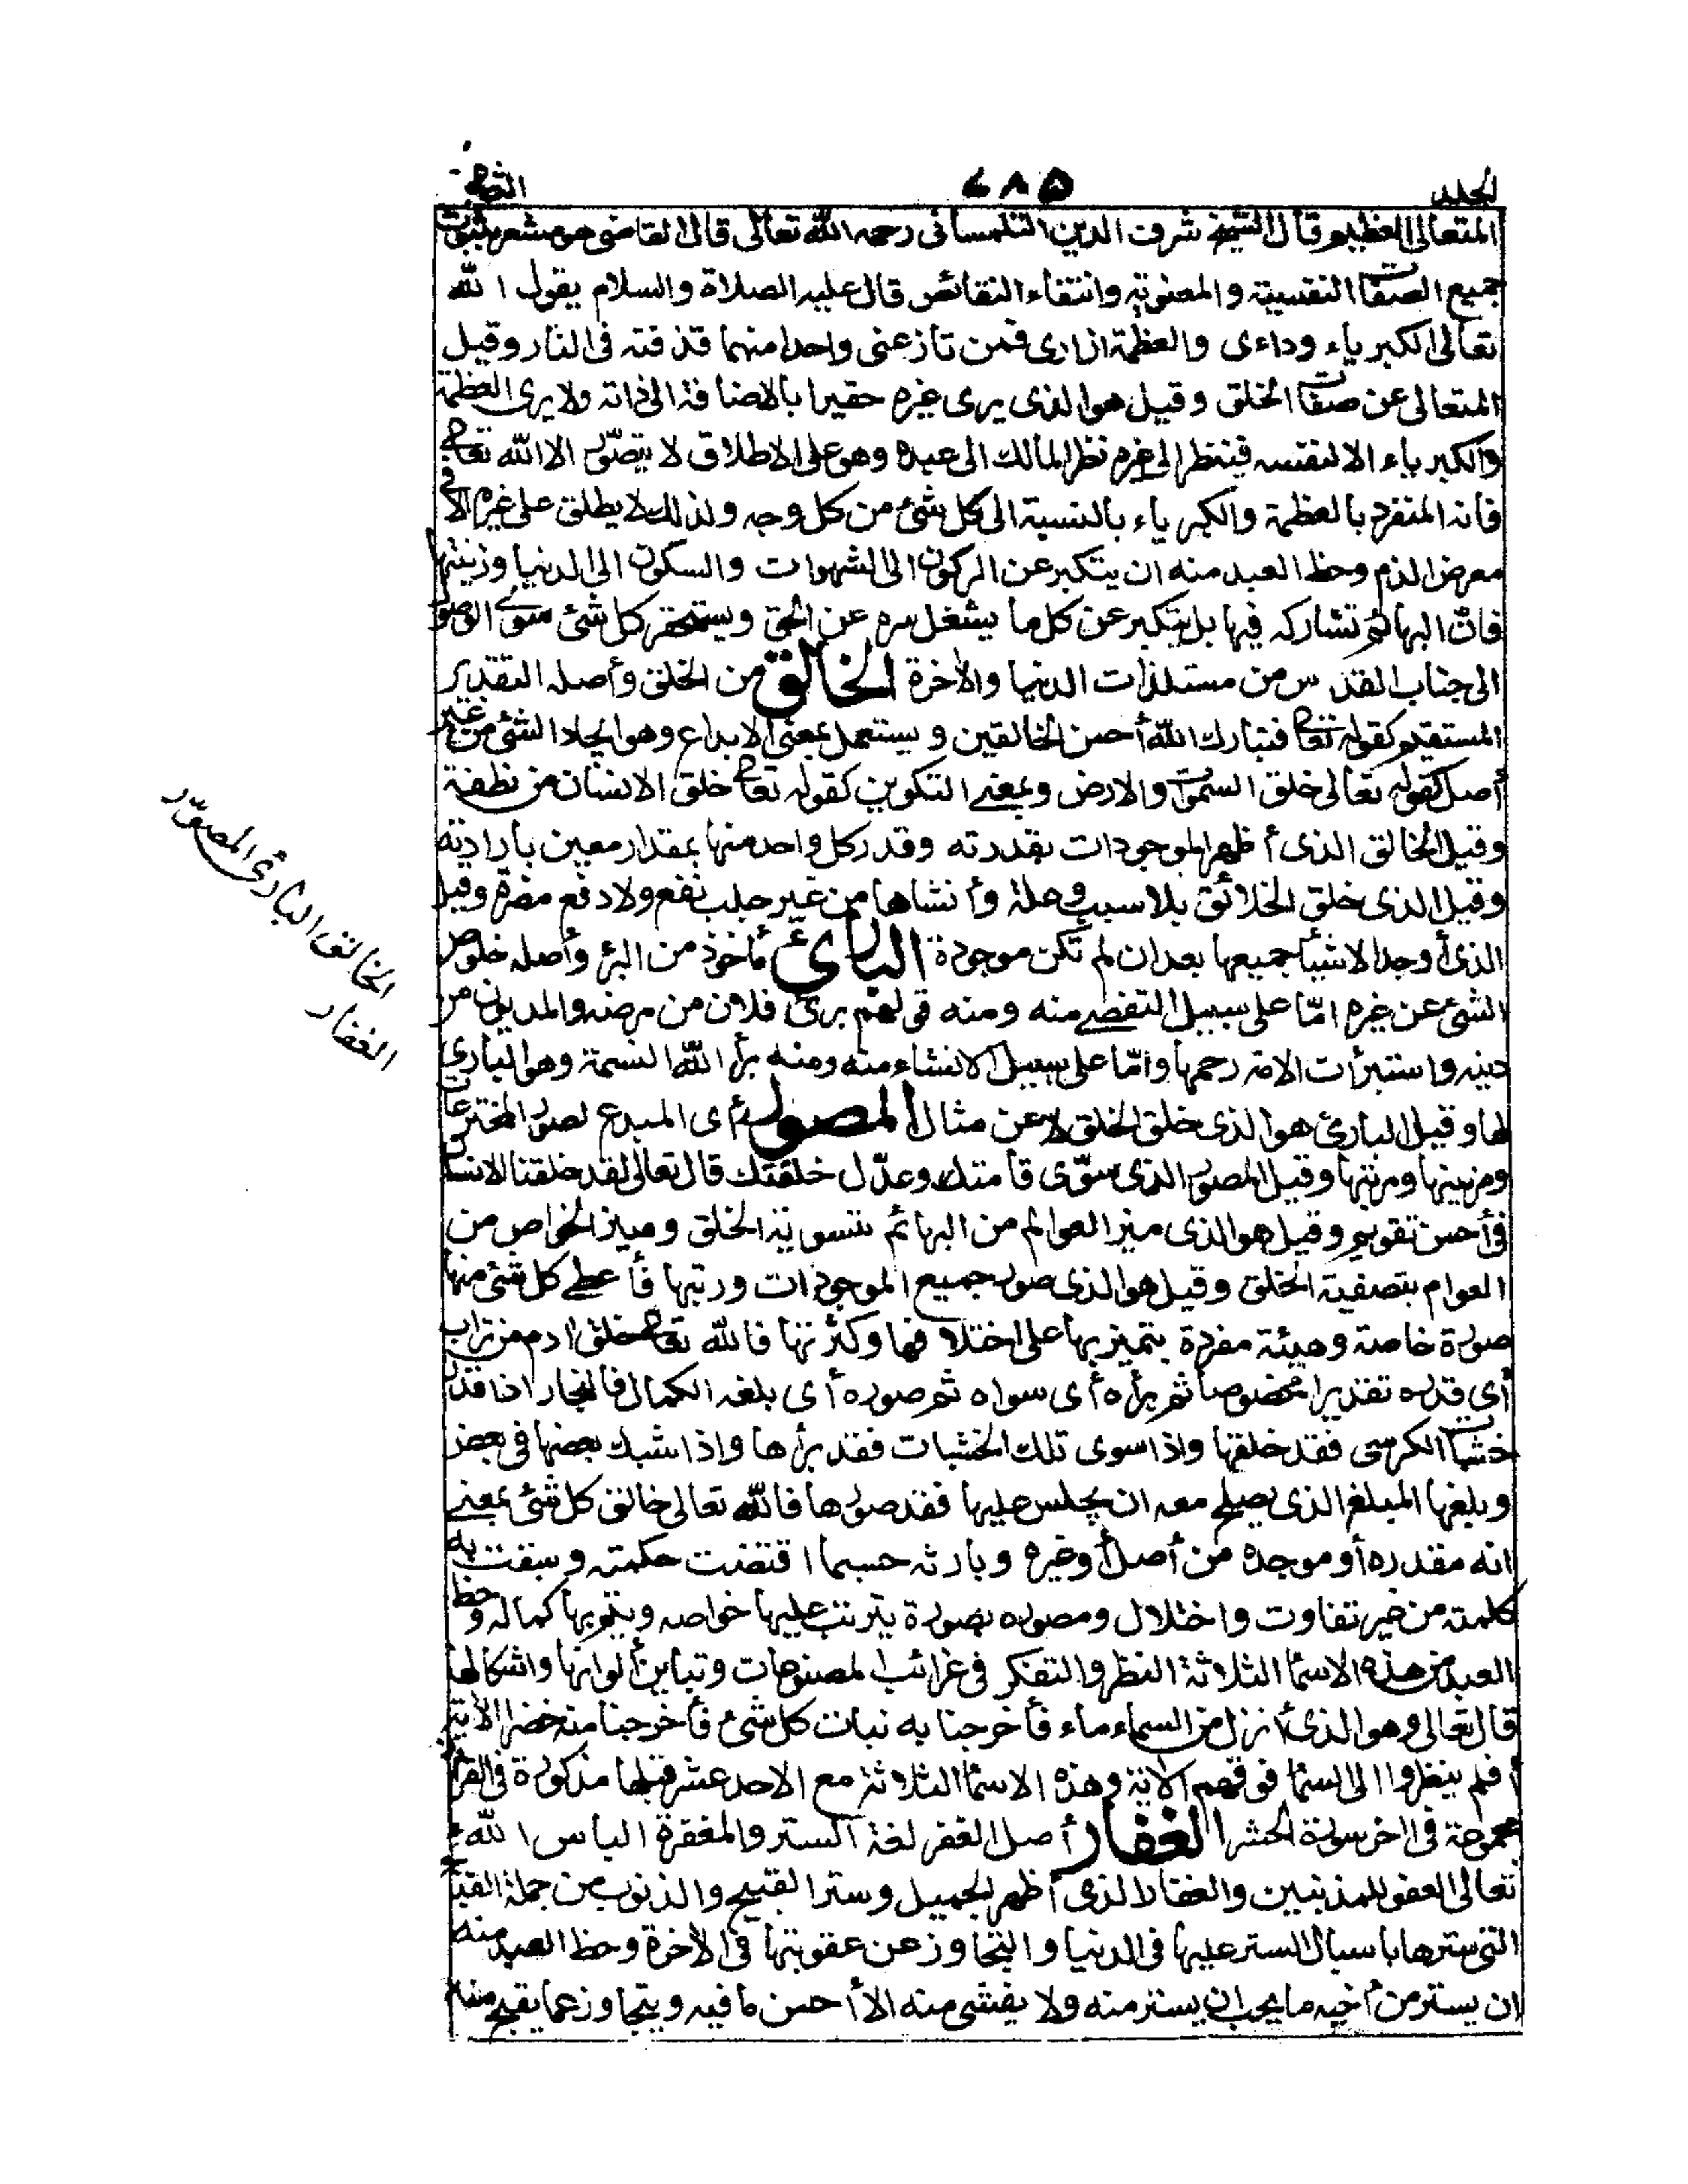 الجلد ٤٨٥ الثانى
المتعالى العظيم قال الشيخ شرف الدين التلمسانى رحمه الله تعالى قال القاضى هو مشعر بثبوت
جميع الصفات النفسية والمعنوية وانتفاء النقائص قال عليه الصلاة والسلام يقول الله
تعالى الكبرياء رداءى والعظمة ازارى فمن نازعنى واحدا منهما قذفته فى النار وقيل
المتعالى عن صفات الخلق وقيل هو الذى يرى غيره حقيرا بالاضافة الى ذاته ولا يرى العظمة
والكبرياء الا لنفسه فينظر الى غيره نظر المالك الى عبده وهو على الاطلاق لا يتصوّر الا الله تعالى
فأنه المنفرد بالعظمة والكبرياء بالنسبة الى كل شئ من كل وجه ولذلك لا يطلق على غيره الا فى
معرض الذم وحظ العبد منه ان يتكبر عن الركون الى الشهوات والسكون الى الدنيا وزينتها
فانّ البهائم تشاركه فيها بل يتكبر عن كل ما يشغل سره عن الحق ويستحقر كل شئ سوى الوصول
الى جناب القدس من مستلذات الدنيا والآخرة الخالق من الخلق وأصله التقدير
المستقيم كقوله تعالى فتبارك الله أحسن الخالقين ويستعمل بمعنى الابداع وهو ايجاد الشئ من غير
أصل كقوله تعالى خلق السموات والارض وبمعنى التكوين كقوله تعالى خلق الانسان من نطفة
وقيل الخالق الذى أظهر الموجودات بقدرته وقدر كل واحد منها بمقدار معين بأرادته
وقيل الذى خلق الخلائق بلا سبب وعلة وأنشاها من غير جلب نفع ولا دفع مضرة وقيل
الذى أوجد الاشيا جميعها بعد ان لم تكن موجودة البارئ مأخوذ من البرء وأصله خلوص
الشئ عن غيره امّا على سبيل التفصى منه ومنه قولهم برئ فلان من مرضه والمديون من
دينه واستبرأت الامة رحمها وامّا على سبيل الانشاء منه ومنه برأ الله النسمة وهو البارى
لها وقيل البارئ هو الذى خلق الخلق لا عن مثال المصور أى المبدع لصور المخترعات
ومزينها ومرتبها وقيل المصور الذى سوّى قامتك وعدّل خلقتك قال تعالى لقد خلقنا الانسان
فى أحسن تقويم وقيل هو الذى ميز العوالم من البهائم بتسوية الخلق وميز الخواص من
العوام بتصفية الخلق وقيل هو الذى صور جميع الموجودات ورتبها فأعطى كل شئ منها
صورة خاصة وهيئة مفردة يتميز بها على اختلافها وكثرتها فالله تعالى خلق ادم من تراب
أى قدره تقديرا مخصوصا ثم برأه أى سواه ثم صوره أى بلغه الكمال فالنجار اذا قدر
خشبات الكرسى فقد خلقها واذا سوى تلك الخشبات فقد برأها واذا شبك بعضها فى بعض
وبلغها المبلغ الذى يصلح معه ان يجلس عليها فقد صورها فالله تعالى خالق كل شئ بمعنى
انه مقدره أو موجده من أصل أو غيره وبارئه حسبما اقتضت حكمته وسبقت به
كلمته من غير تفاوت واختلال ومصوره بصورة يترتب عليها خواصه ويتم بها كماله وحظ
العبد من هذه الاسما الثلاثة النظر والتفكر فى غرائب المصنوعات وتباين ألوانها واشكالها
قال تعالى وهو الذى أنزل من السماء ماء فأخرجنا به نبات كل شئ فأخرجنا منه خضرا الآية
أفلم ينظروا الى السما فوقهم الآية وهذه الاسما الثلاثة مع الاحد عشر قبلها مذكورة فى القرآن
مجموعة فى اخر سورة الحشر الغفار أصل الغفر لغة الستر والمغفرة الباس الله
تعالى العفو للمذنبين والغفار الذى أظهر الجميل وستر القبيح والذنوب من جملة القبائح
التى سترها باسبال الستر عليها فى الدنيا والتجاوز عن عقوبتها فى الآخرة وحظ العبد منه
ان يستر من أخيه ما يجب ان يستر منه ولا يفشى منه الا أحسن ما فيه ويتجاوز عما يقبح منه
الخالق البارئ المصوّر
الغفار